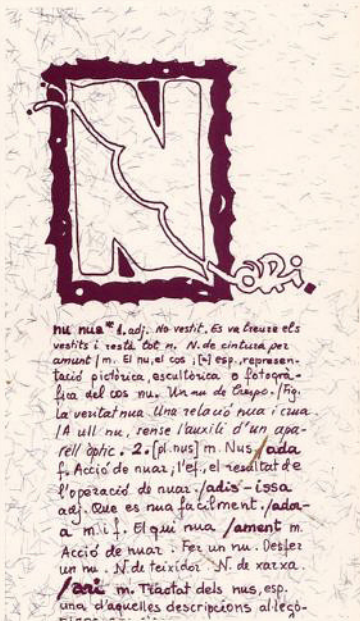 N
ORI.
nu nua* 1. adj. No vestit. Es va treure els
vestits i restà tot n. N. de cintura per
amunt / m. El nu, el cos ;[*] esp., represen-
tació pictòrica, escultòrica o fotogrà-
fica del cos nu. Un nu de Crespo. / Fig.
La veritat nua. Una relació nua i crua.
/ A ull nu, sense l'auxili d'un apa-
rell òptic. 2. [pl. nus] m. Nus /ada
f. Acció de nuar; l'ef., el resultat de
l'operació de nuar. /adís -issa
adj. Que es nua fàcilment. /ador-
a m. i f. El qui nua /ament m.
Acció de nuar. Fer un nu. Desfer
un nu. N. de teixidor N. de xarxa.
/ari m. Tractat dels nus, esp.
una d'aquelles descripcions al·legò-